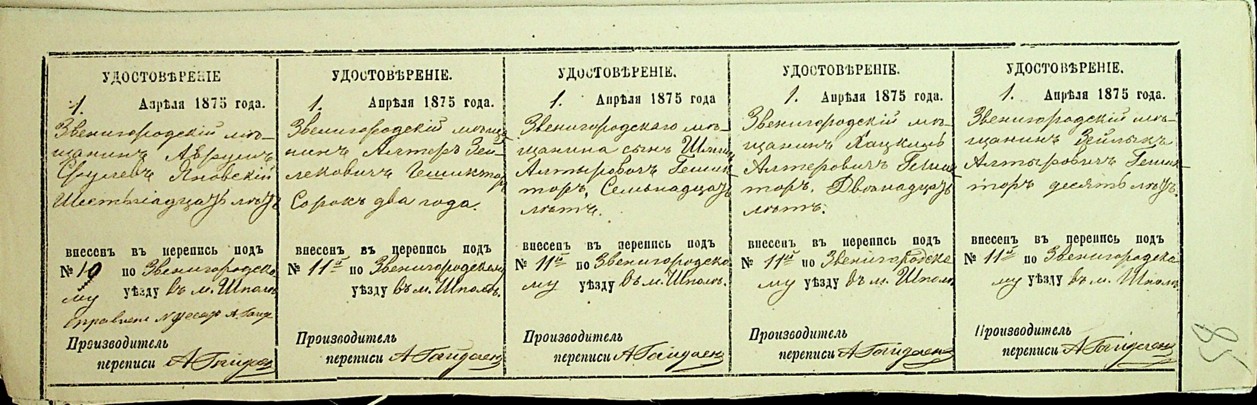 УДОСТОВѢРЕНІЕ
1. Апрѣля 1875 года.
Звенигородскій мѣ-
щанинъ Аврумъ
Сруулевъ Яновскій
Шестьнадцать лѣтъ
внесенъ въ перепись подъ
№ 19 по Звенигородско
му уѣзду въ м. Шполѣ
Производитель
переписи А Гайдаен
УДОСТОВѢРЕНІЕ.
1. Апрѣля 1875 года.
Звенигородскій мѣща
нинъ Алтеръ Зей-
лековичъ Гешиктор
Сорокъ два года.
внесенъ въ перепись подъ
№ 11й по Звенигородском
уѣзду въ м. Шполѣ.
Производитель
переписи А Гайдаен
УДОСТОВѢРЕНІЕ.
1. Апрѣля 1875 года
Звенигородскаго мѣ-
щанина сынъ
Алтыровичъ Гешик
торъ, Семьнадцать
лѣтъ.
внесенъ въ перепись подъ
№ 11й по Звенигородско
му уѣзду въ м. Шполѣ.
Производитель
переписи А Гайдаен
УДОСТОВѢРЕНІЕ.
1. Апрѣля 1875 года.
Звенигородскій мѣ-
щанинъ Хацкиль
Алтеровичъ Гешик
торъ. Двѣнадцать
лѣтъ.
внесенъ въ перепись подъ
№ 11й по Звенигородско
му уѣзду въ м. Шполѣ
Производитель
переписи А Гайдаен
УДОСТОВѢРЕНІЕ.
1. Апрѣля 1875 года.
Звенигородскій мѣ-
щанинъ Зейлыкъ
Алтыровичъ Гешик
торъ десять лѣтъ.
внесенъ въ перепись подъ
№ 11й по Звенигородско
му уѣзду въ м. Шполѣ
Производитель
переписи А Гайдаен
58